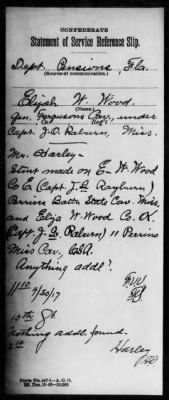 CONFEDERATE
Statement of Service Reference Slip.
Dept. Pensions, Fla.
(Source of communication.)
Elijah W. Wood
(Name.)
Gen. Fergusons Cav., under
Reg't
Capt. J. Q. Raburn, Miss.
Mr. Harley-
Stmt made on E. W. Wood
Co C (Capt. J. Q. Rayburn)
Perrins Battn State Cav. Miss.
and Elija W. Wood Co. K
(Capt J. Q. Raburn) 11 Perrins
Miss Cav., C.S.A.
Anything addl?
11 10 4/30/17
10th St
Nothing addl. found.
Harley
Form No. 467-1-A. G. O.